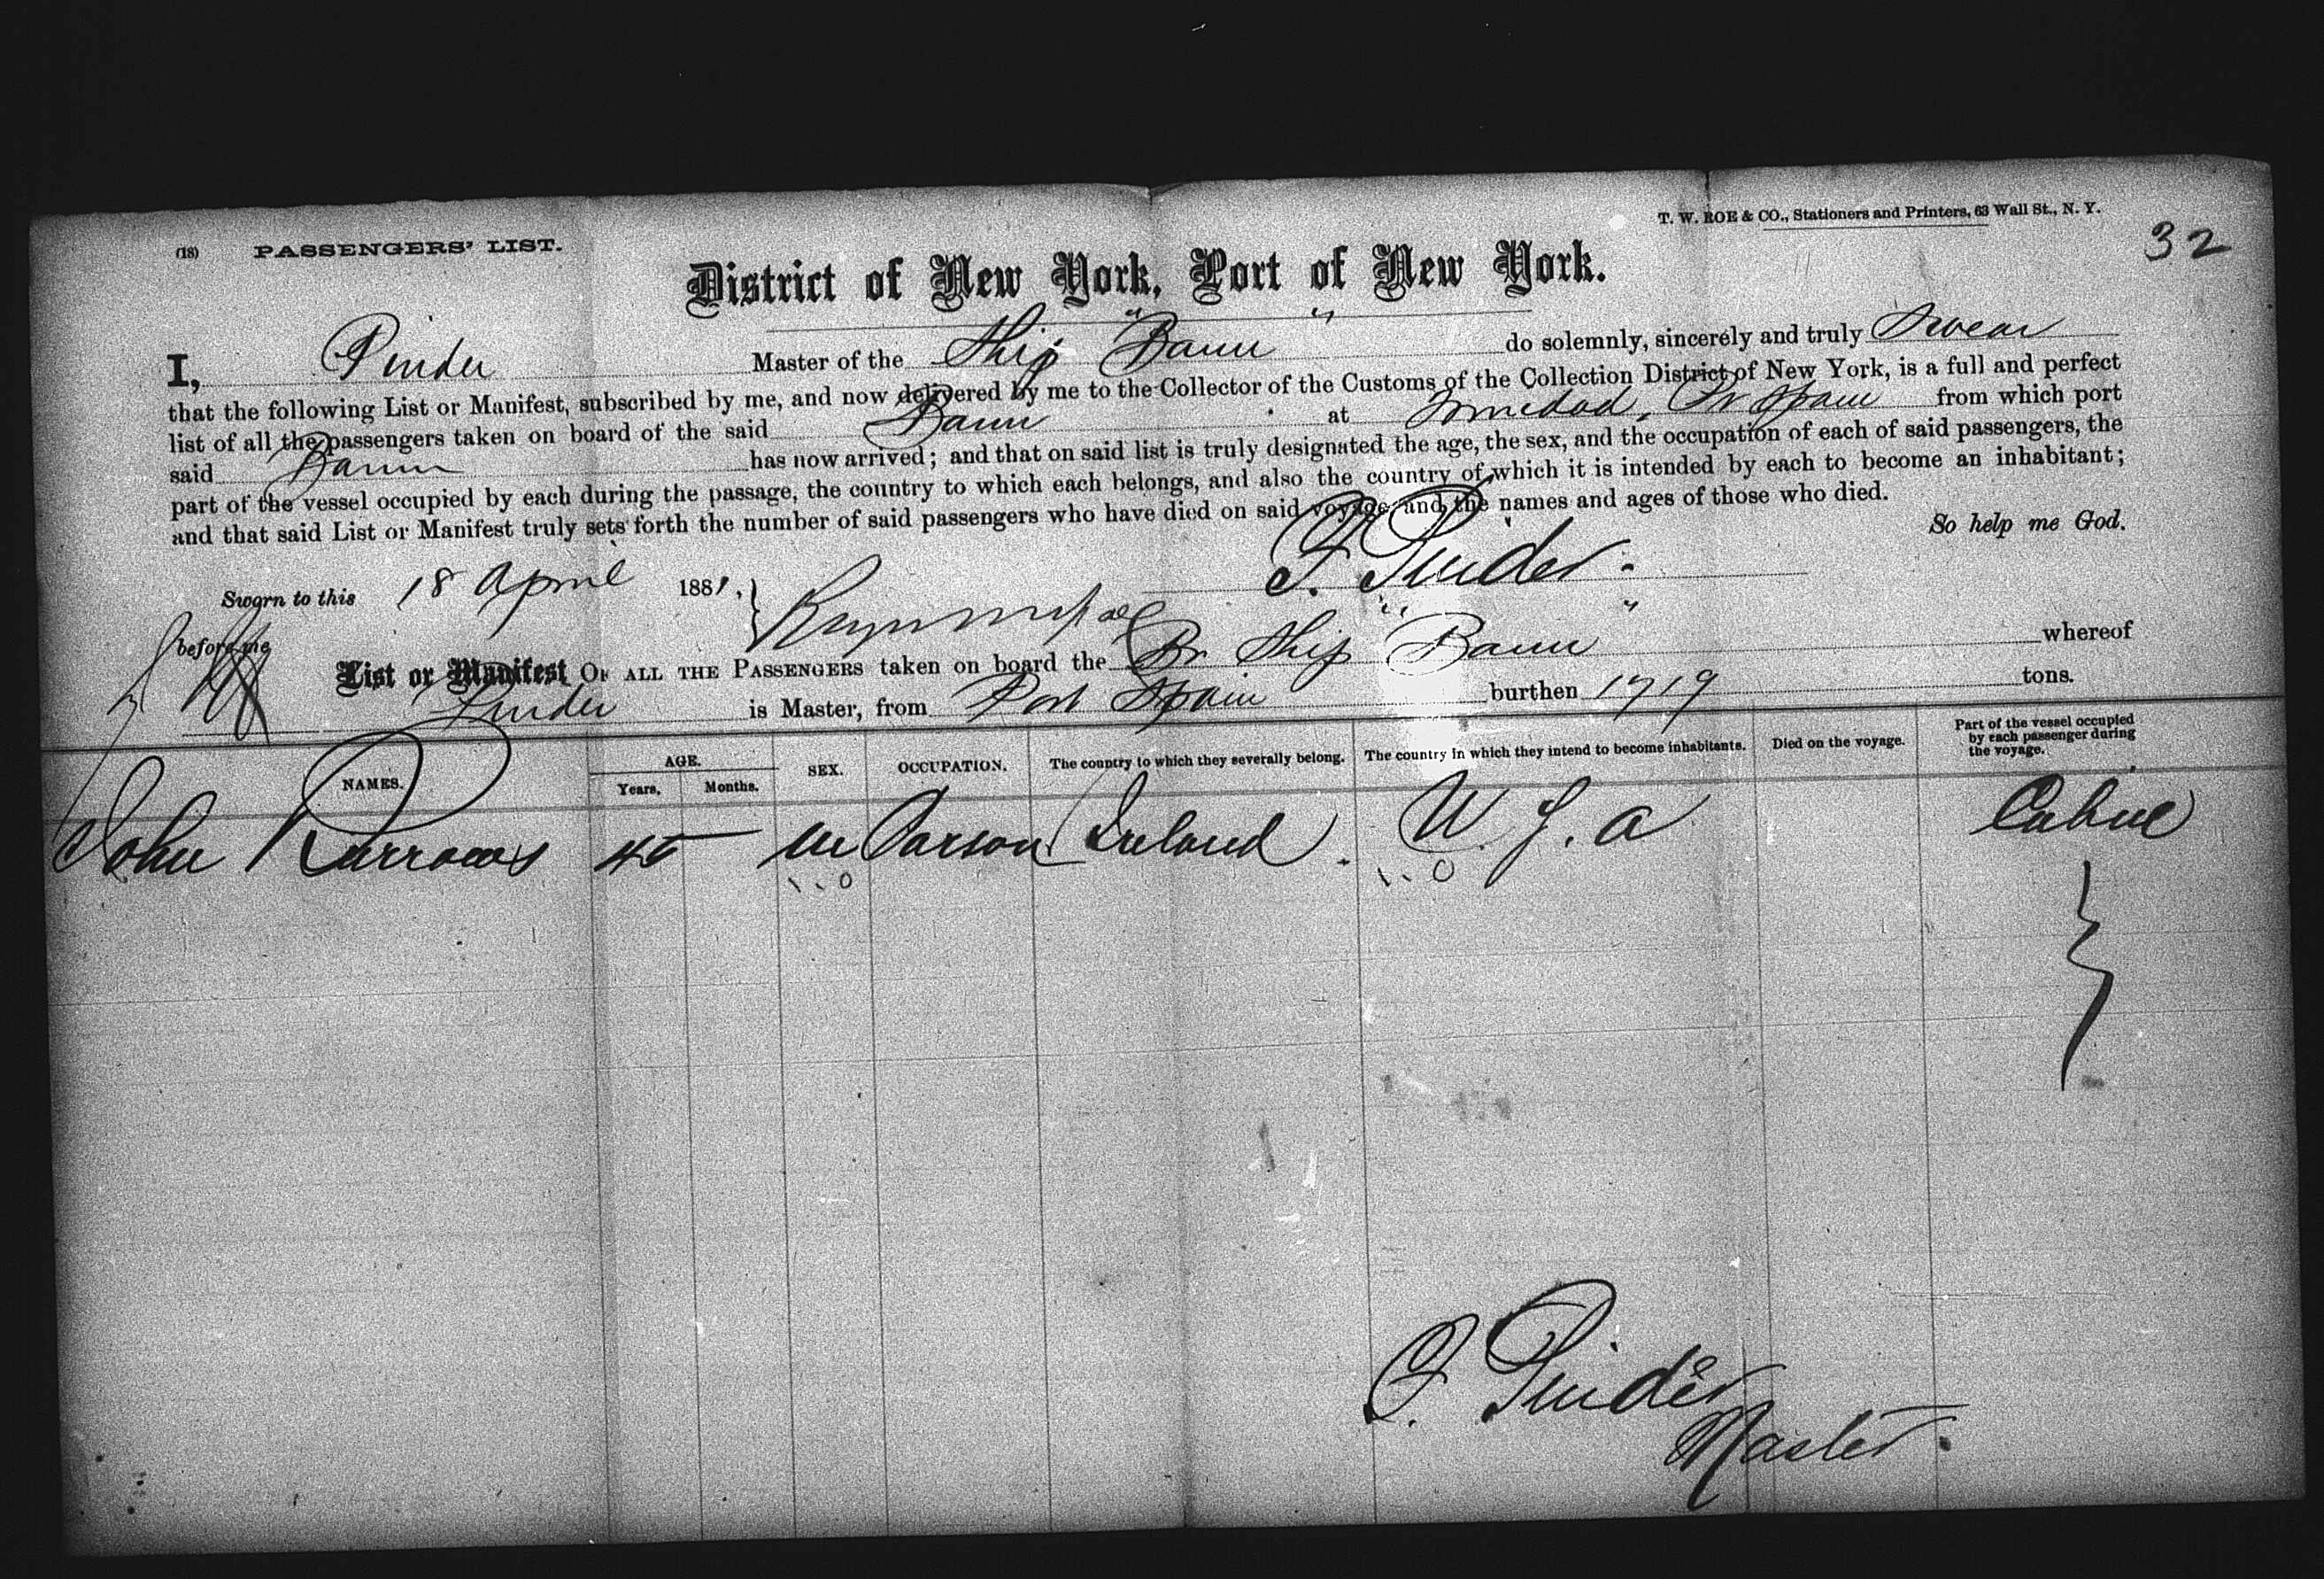 T. W. ROE & CO., Stationers and Printers, 63 Wall St., N. Y.
32
(18) PASSENGERS' LIST.
District of New York, Port of New York.
I, Pinder Master of the Ship "Bann" do solemnly, sincerely and truly Swear
that the following List or Manifest, subscribed by me, and now delivered by me to the Collector of the Customs of the Collection District of New York, is a full and perfect
list of all the passengers taken on board of the said Bann at Trinidad, Pr Spain from which port
said Bann has now arrived; and that on said list is truly designated the age, the sex, and the occupation of each of said passengers, the
part of the vessel occupied by each during the passage, the country to which each belongs, and also the country of which it is intended by each to become an inhabitant;
and that said List or Manifest truly sets forth the number of said passengers who have died on said voyage, and the names and ages of those who died.
So help me God.
Sworn to this 18 April 1881, F. Pinder.
before me
List or Manifest OF ALL THE PASSENGERS taken on board the Br Ship "Bann" whereof
Pinder is Master, from Port Spain burthen 1719 tons.
NAMES. AGE. Years. Months. SEX. OCCUPATION. The country to which they severally belong. The country in which they intend to become inhabitants. Died on the voyage. Part of the vessel occupied by each passenger during the voyage.
John Burrows 45 M Parson Ireland. U. S. A Cabin
F. Pinder
Master.